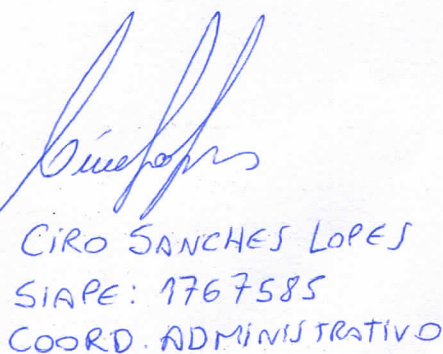 CIRO SANCHES LOPES
SIAPE: 1767585
COORD. ADMINISTRATIVO